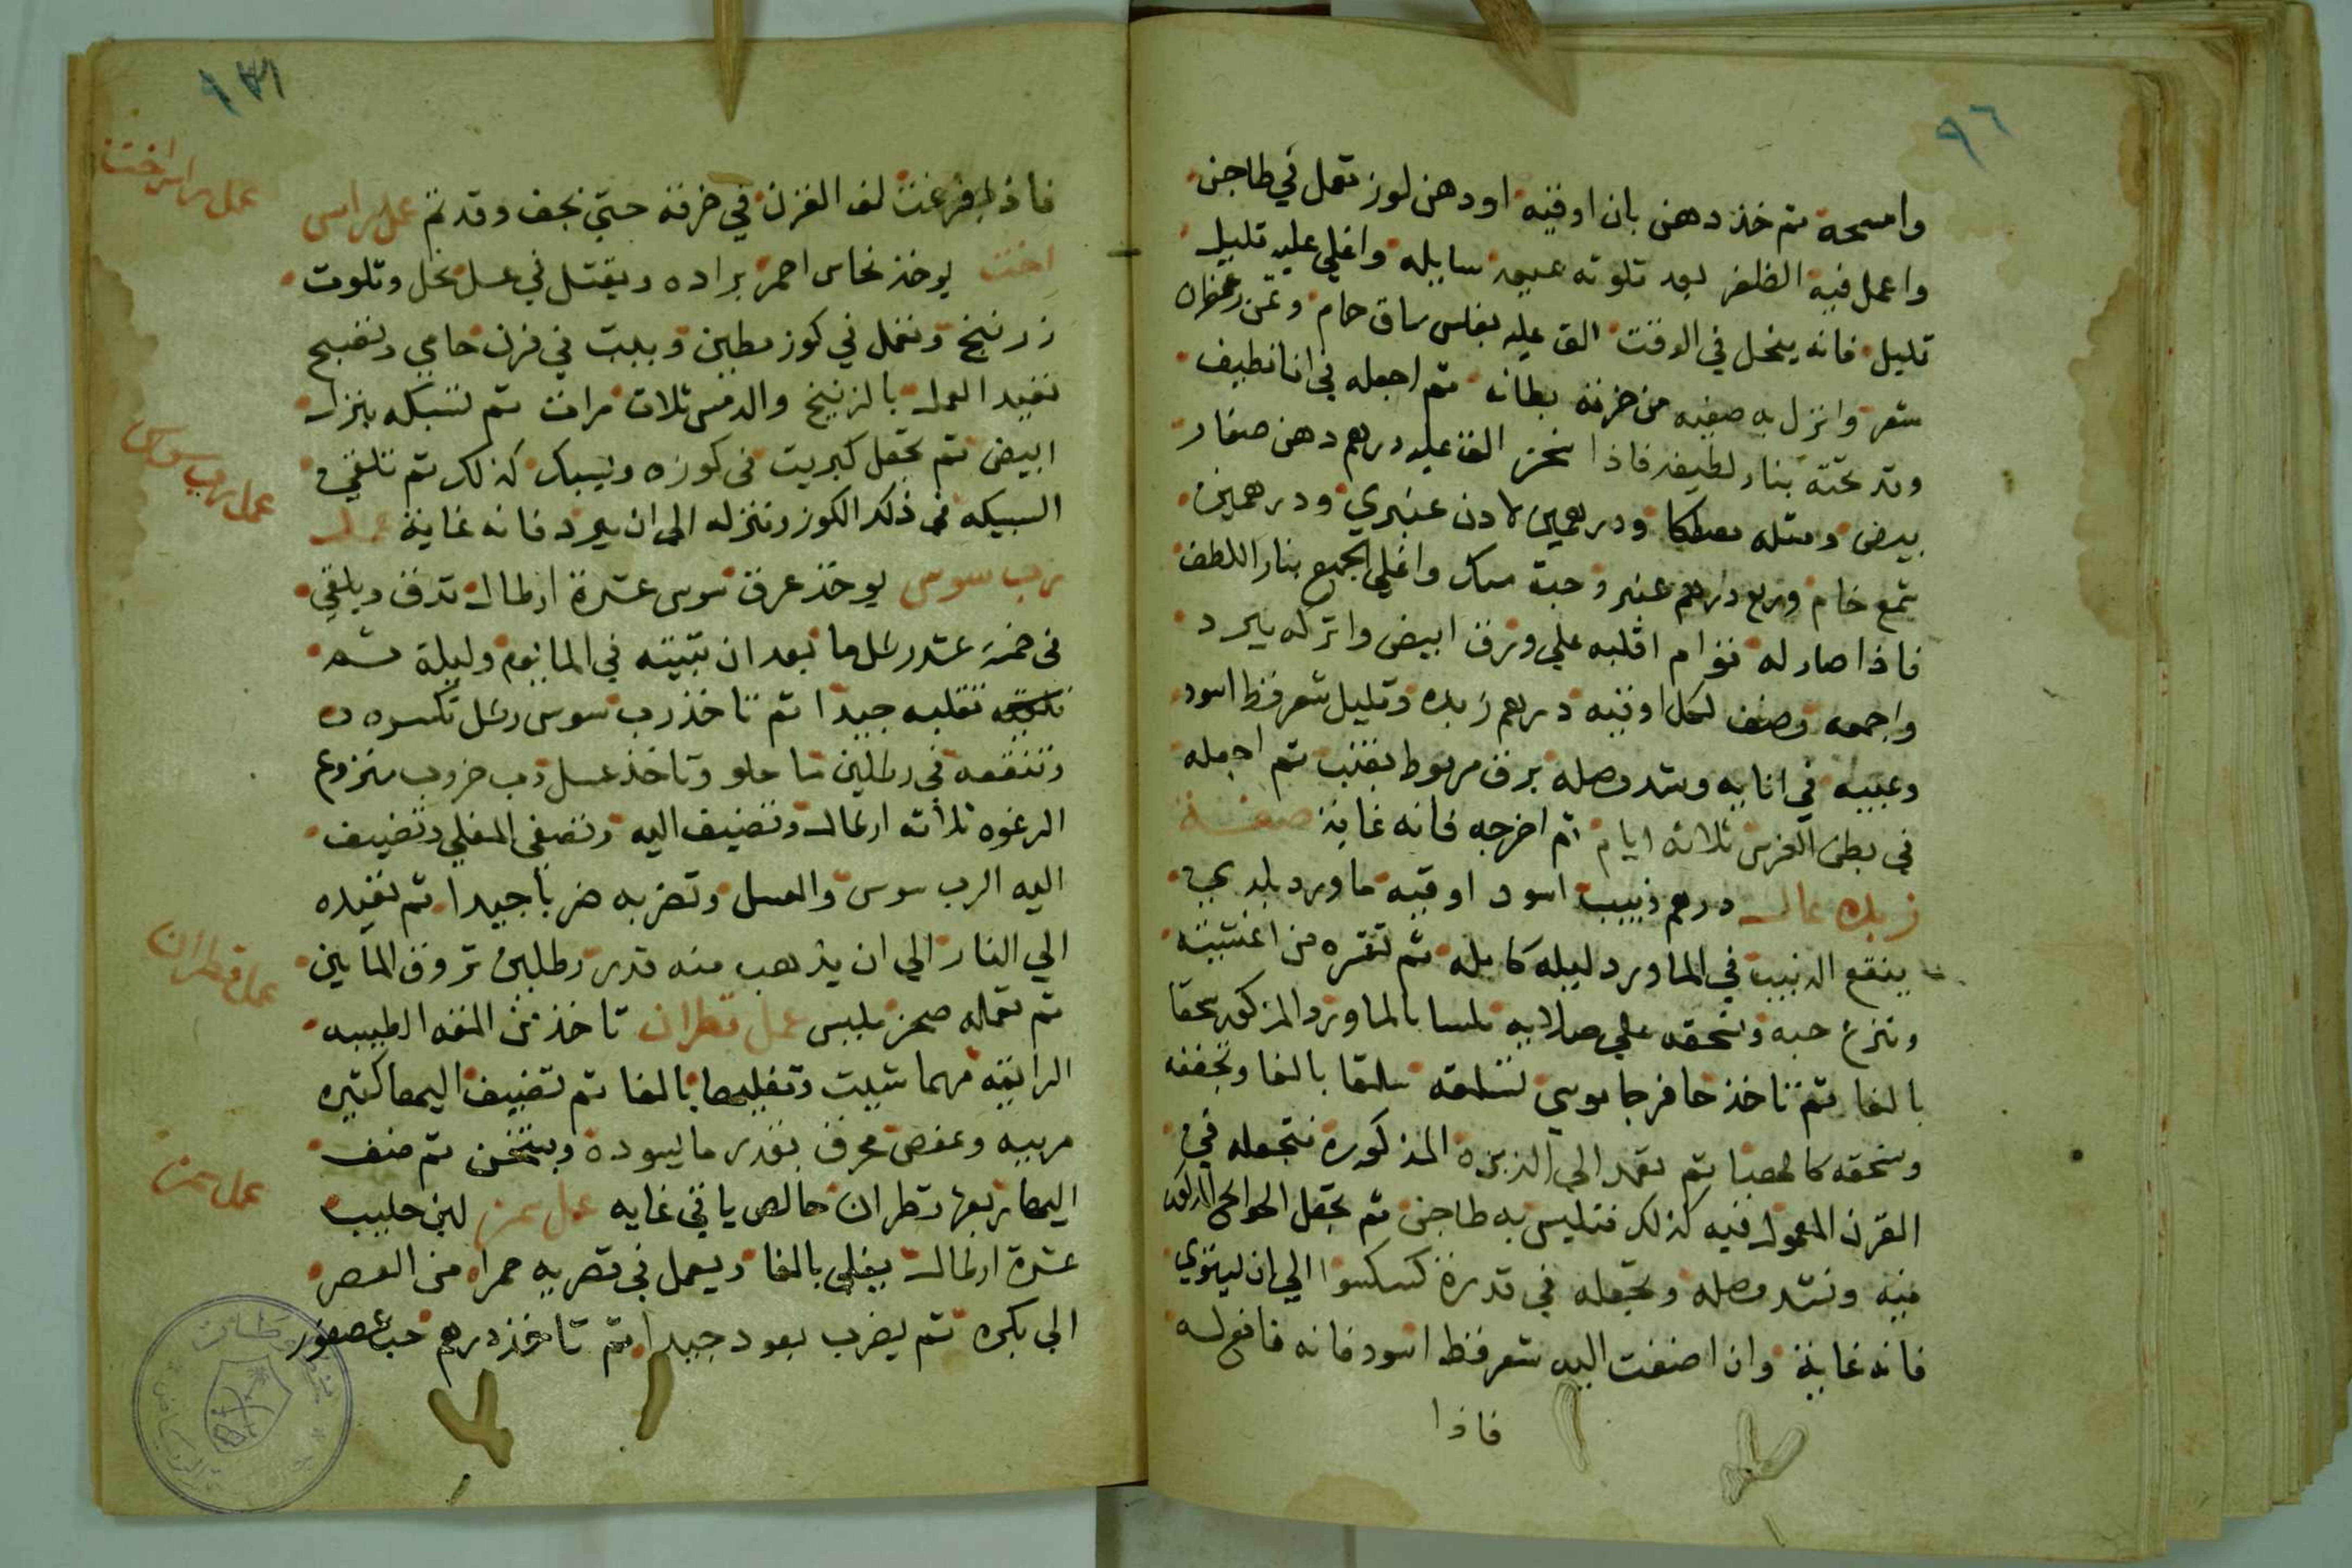 ٩٦
وامسحه تم خذ دهن بان اوقيه اودهن لوز تعمل في طاجن
واعمل فيه الظفر بعد تلوته عبيه سايله واغلي عليه قليل
قليل فانه ينحل في الوقت الق عليه بفلس ساق حام وتمن زعفران
شعر وانزل به صفيه من خرقه بطانه تم اجعله في انا نظيف
وقد تحته بنار لطيفه فاذا سخن الق عليه درهم دهن صفار
بيض ومتله مصطكا ودرهمين لادن عنبري ودرهمين
شمع خام وربع درهم عنبر وحبة مسك واغلي الجميع بنار اللطف
فاذا صار له قوام اقلبه علي ورق ابيض واتركه يبرد
واجمعه وصف لكل اوقيه درهم زبده وقليل شعر قط اسود
وعبيه في انابيه وشد وصله برق مربوط بقنب تم اجعله
في بطن الفرس تلاته ايام تم اخرجه فانه غاية صفة
زبده عال درهم زبيب اسود اوقيه ماورد بلدي
ينقع الزبيب في الماورد ليله كامله تم تقشره من اغشيته
وتنزع حبه وتسحقه علي صلابه ملسا بالماورد المذكور سحقا
بالغا تم تاخذ حافر جاموسي تسلقه سلقا بالغا وتجففه
وتسحقه كالهبا تم تعمد الي الزبده المذكورة فتجعله في
القرن المعمول فيه كذلك فتليس به طاجن تم تجعل الحوايج المذكوره
فيه وتشد وصله وتجعله في قدرة كسكسوا الي ان يستوي
فانه غاية وان اضفت اليه شعر قط اسود فانه فافعله
فاذا
عمل راس اخت
فاذا فرغت لف القرن في خرقه حتي يجف وقد تم عمل راس
اخت يوخذ نحاس احمر براده ويقتل في عسل نحل وتلوت
زرنيخ وتعمل في كوز مطين ويبيت في فرن حامي وتصبح
تعيد العمل بالزرنيخ والدمس تلات مرات تم تسبكه ينزل
ابيض تم تجعل كبريت في كوزه ويسبك كذلك تم تلقي
السبيكه في ذلك الكوز وتنزله الي ان يبرد فانه غاية عمل
عمل رب سوس
رب سوس يوخذ عرق سوس عشرة ارطال تدق ويلقي
في خمسة عشر رطل ما بعد ان تبيته في الما يوم وليلة تم
تقلبه جيدا تم تاخذ رب سوس رطل تكسره
وتنقعه في رطلين ما حلو وتاخذ عسل رب خروب منزوع
الرغوه تلاته ارطال وتضيف اليه وتصفي المغلي وتضيف
اليه الرب سوس والعسل وتضربه ضربا جيدا تم تعيده
الي النار الي ان يذهب منه قدر رطلين تروق المابين
عمل قطران
تم تعماله صحن مليس عمل قطران تاخذ من النفه الطيبه
الرايقه مهما شيت وتغليها بالغا تم تضيف اليها كتيره
مربيه وعفص محرق بقدر ما يسوده ويتخن تم ضف
عمل سمن
اليها ربعها قطران خالص ياتي غايه عمل سمن لبن حليب
عشرة ارطال يغلي بالغا ويعمل في قصريه حمرا من العصر
الي بكره تم يضرب بعود جيدا تم تاخذ درهم حب عصفور